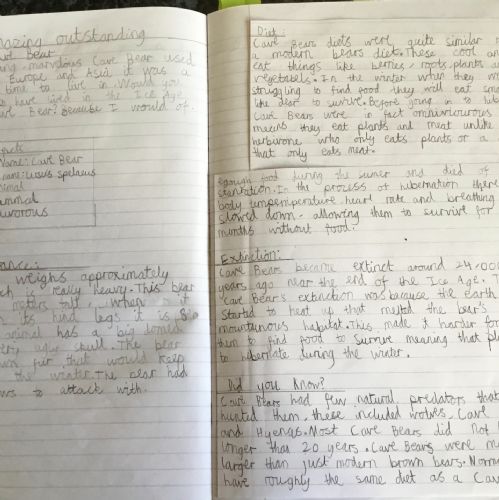 mazing outstanding
Cave Bear
marvelous Cave Bear used
Europe and Asia it was a
time to live in. Would you
have lived in the Ice Age
Bear? Because I would of.
facts
Name: Cave Bear
name: Ursus spelaeus
nimal
ammal
nivorous
ance:
weighs approximately
really heavy. This bear
meters tall, when
its hind legs it is
animal has a big domed
skull. The bear
fur that would keep
the winter. The bear had
ws to attack with.
Diet:
Cave Bears diets were quite similar
a modern bears diet. These cool
eat things like berries, roots, plants
vegetabels. In the winter when they
struggling to find food they will eat
like deer to survive. Before going in to
Cave Bears were in fact omnivourous
means they eat plants and meat unlike
herbivore who only eats plants or a
that only eats meat.
enough food during the sumer and died of
starvation. In the process of hibernation there
body temperature, heart rate and breathing
slowed down - allowing them to survive for
months without food.
Extinction:
Cave Bears became extinct around 24,00
years ago near the end of the Ice Age. T
Cave Bear's extinction was because the earth
started to heat up that melted the bear's
mountynous habitat. This made it harder for
them to find food to survive meaning that
to hibernate during the winter.
Did you know?
Cave Bears had few natural predators that
hunted them, these included wolves, Cave
and Hyenas. Most Cave Bears did not
longer than 20 years. Cave Bears were
larger than just modern brown bears. Norma
have roughly the same diet as a Cav